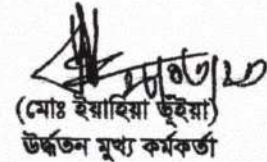 (মোঃ ইয়াহিয়া ভূইয়া)
উর্দ্ধতন মুখ্য কর্মকর্তা